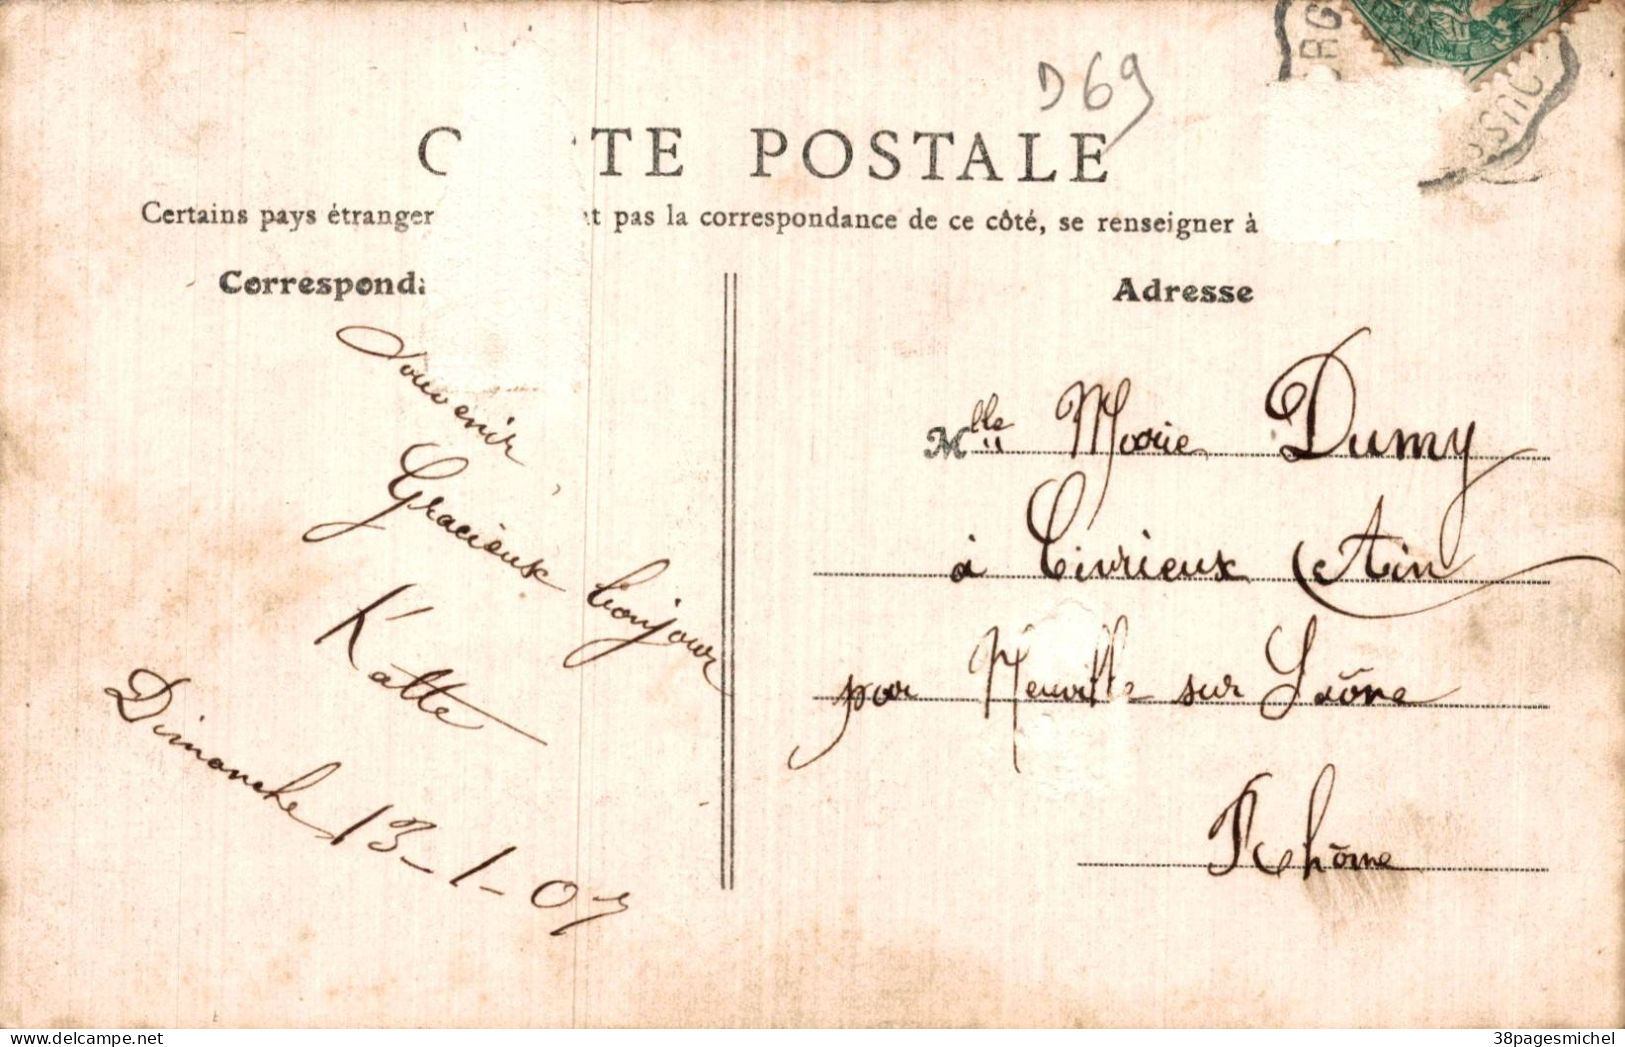 D69
C TE POSTALE
Certains pays étranger t pas la correspondance de ce côté, se renseigner à
Correspond
Adresse
Souvenir
Gracieux bonjour
Katte
Dimanche 13-1-07
Mlle Marie Dumy
à Civrieux (Ain
par Neuville sur Saône
Rhône
38pagesmichel